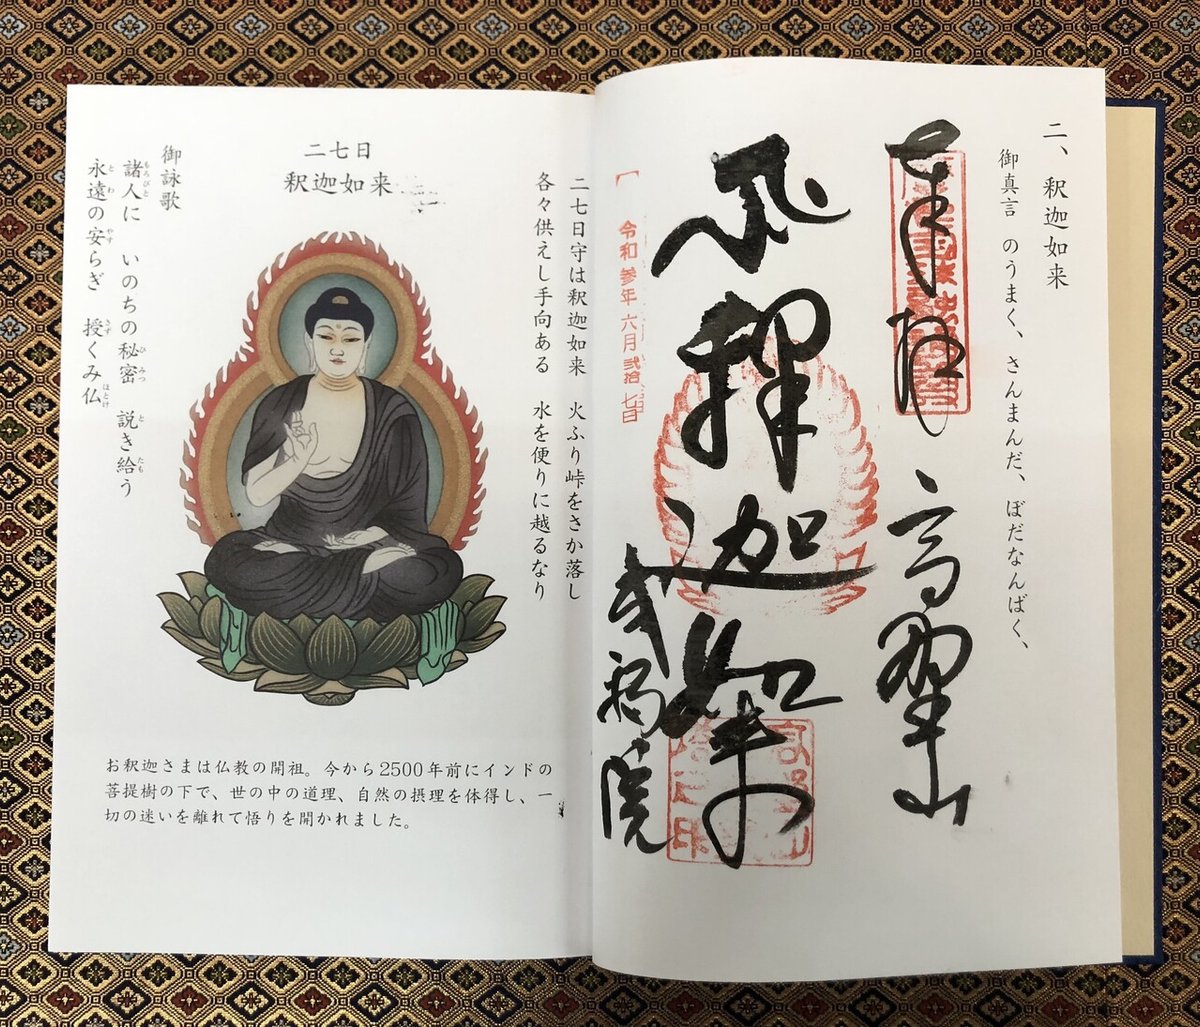 二、釈迦如来
御真言　のうまく、さんまんだ、ぼだなんばく、
奉拝
高野山
釋迦如来
院
令和参年六月弐拾七日
二七日守は釈迦如来　火ふり峠をさか落し
各々供えし手向ある　水を便りに越るなり
二七日
釈迦如来
御詠歌
諸人に　いのちの秘密　説き給う
もろびと　ひみつ　と　たも
永遠の安らぎ　授くみ仏
とわ　やす　さず　ほとけ
お釈迦さまは仏教の開祖。今から2500年前にインドの
菩提樹の下で、世の中の道理、自然の摂理を体得し、一
切の迷いを離れて悟りを開かれました。